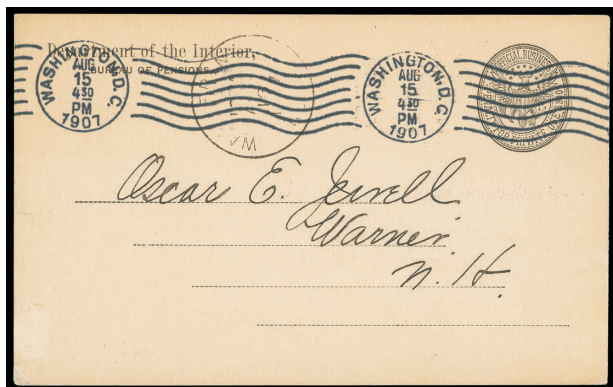 Department of the Interior,
BUREAU OF PENSIONS
WASHINGTON, D.C.
AUG
15
4 30
PM
1907
WASHINGTON, D.C.
AUG
15
4 30
PM
1907
Oscar E. Jewell
Warner
N. H.